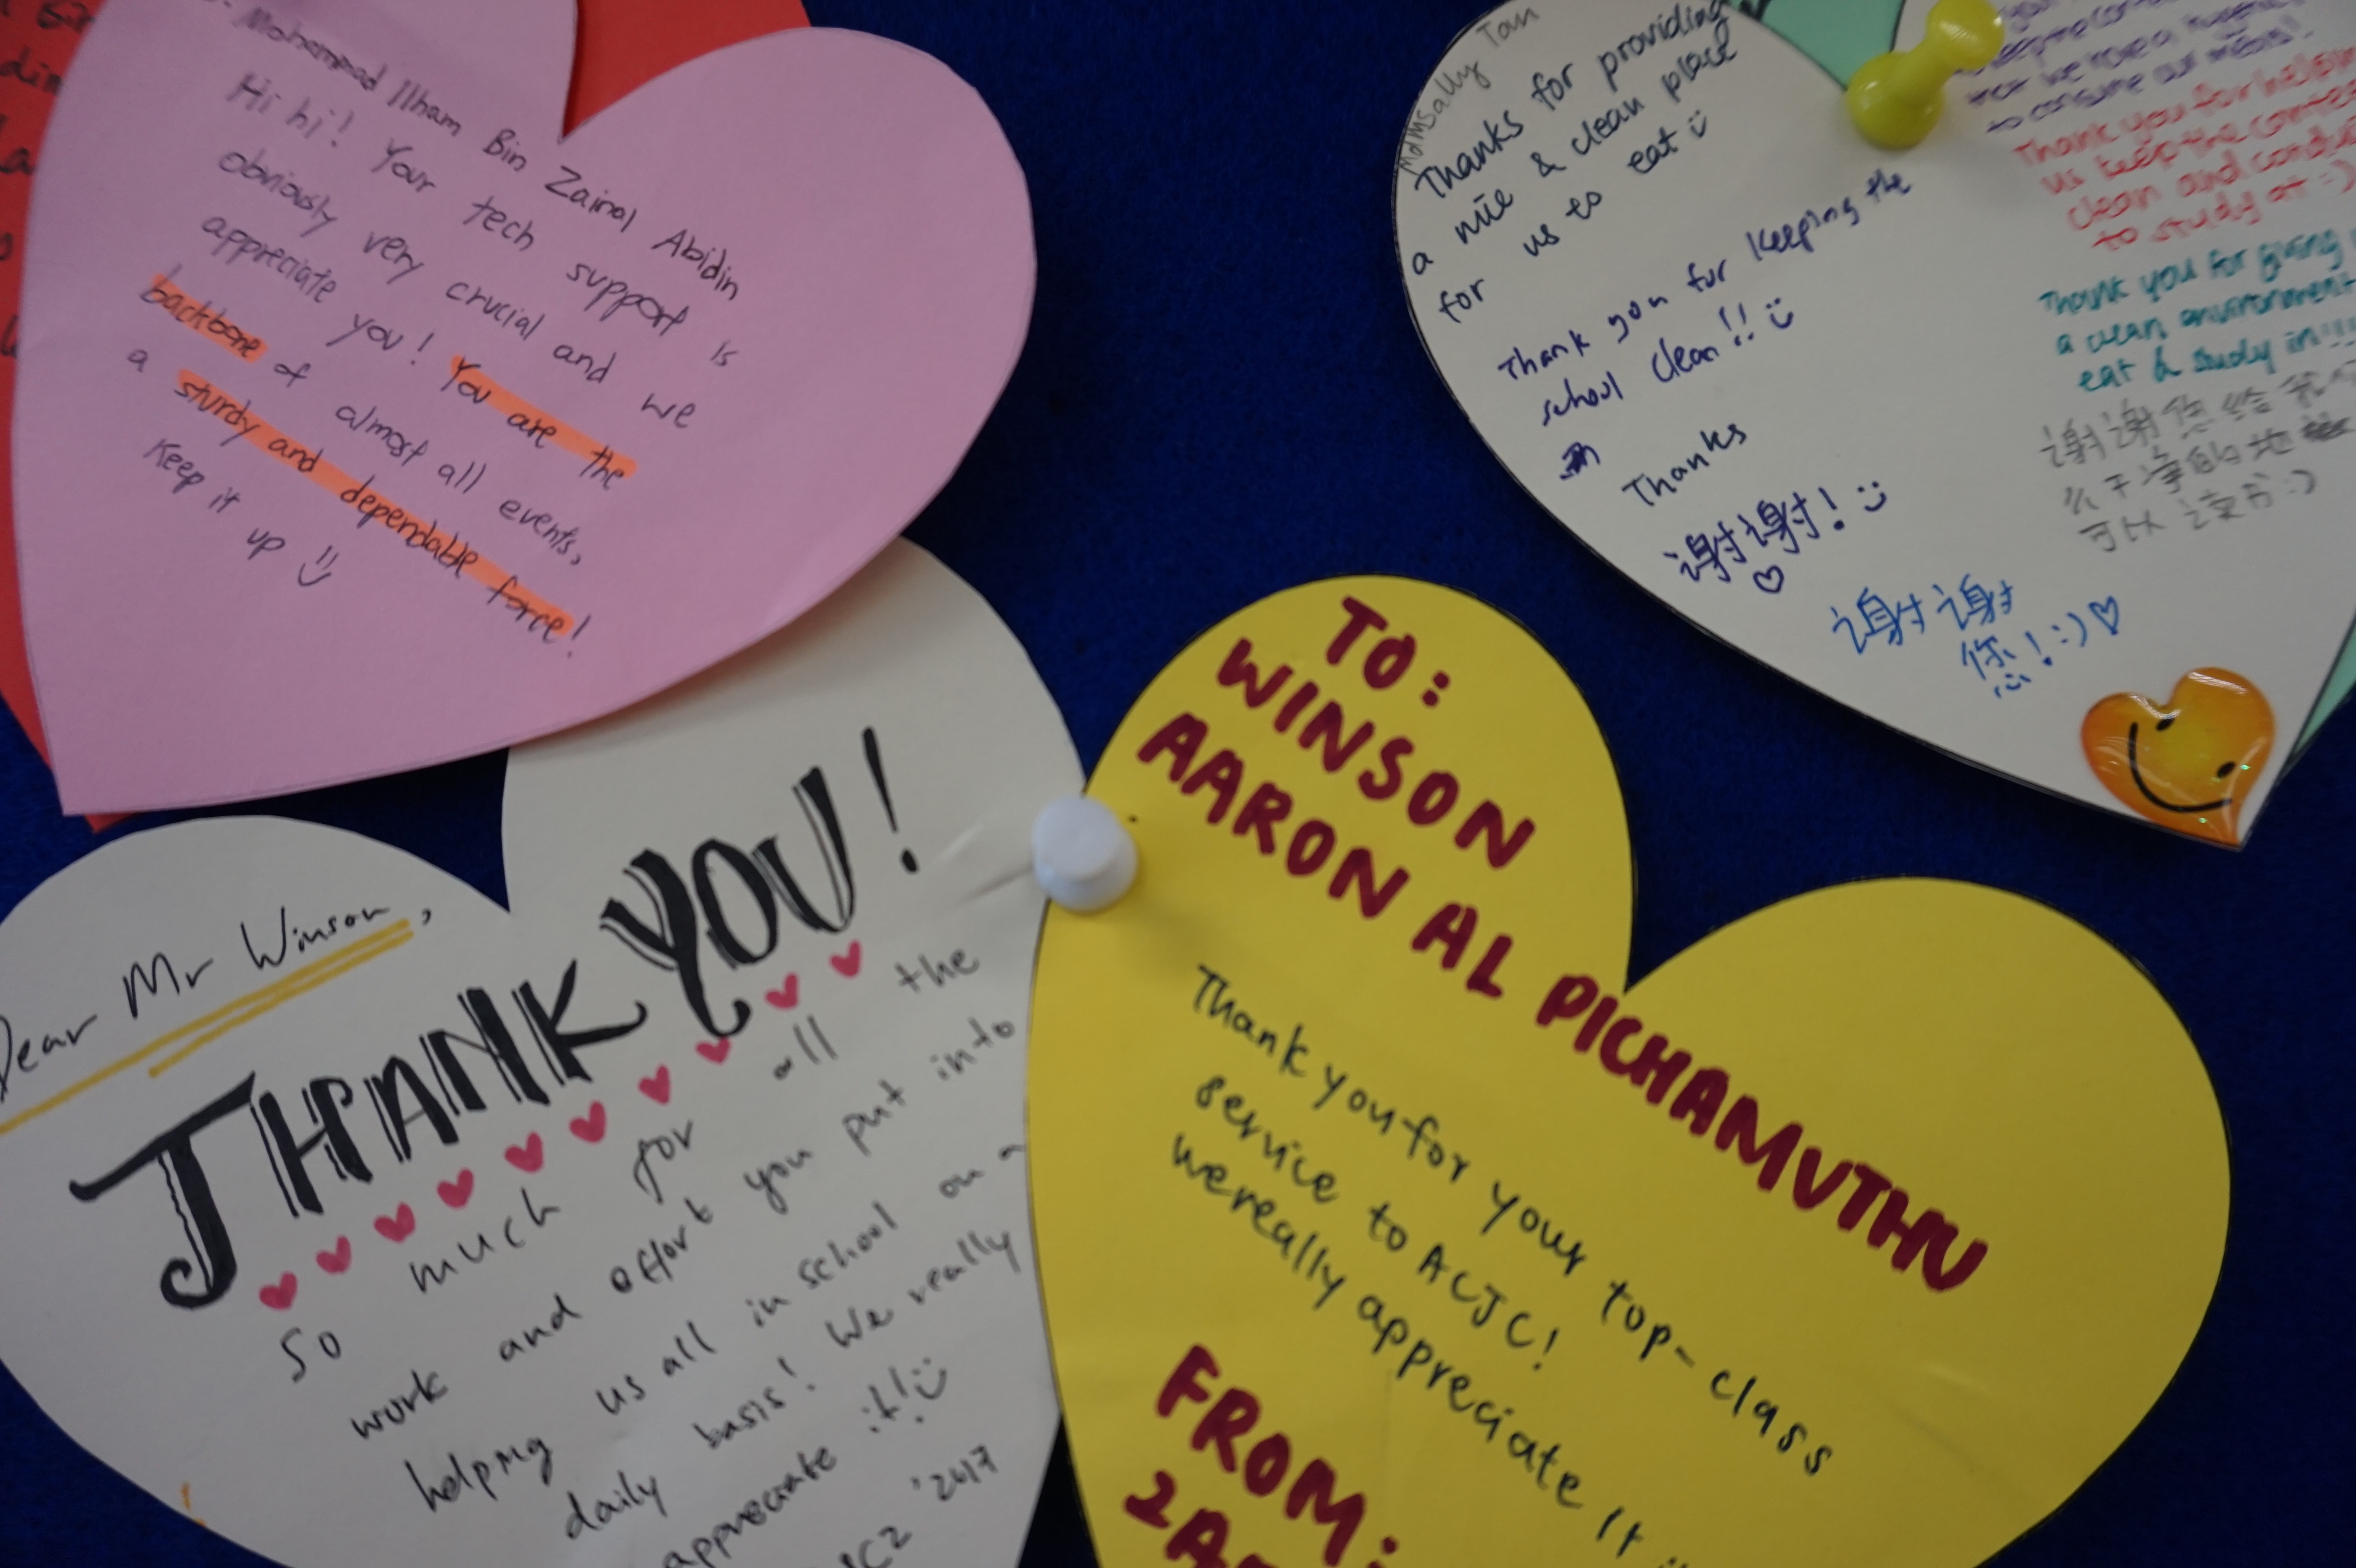 Mohammad Ilham Bin Zainal Abidin
Hi hi! Your tech support is
obviously very crucial and we
appreciate you! You are the
backbone of almost all events,
a sturdy and dependable force!
Keep it up
Mdm Sally Tan
Thanks for providing
a nice & clean place
for us to eat
Thank you for keeping the
school clean!!
Thanks
谢谢!
谢谢
您! :)
to consume our meals!
Thank you for helping
us keep the canteen
clean and
to study at :)
Thank you for giving
a clean environment
eat & study in!!!
谢谢您给我们
么干净的地
可以读书:)
Dear Mr Winson,
THANK YOU!
So much for all the
work and effort you put into
helping us all in school on a
daily basis! We really
appreciate it!
'2017
TO:
WINSON
AARON AL PICHAMUTHU
Thank you for your top-class
service to ACJC!
We really appreciate it
FROM: